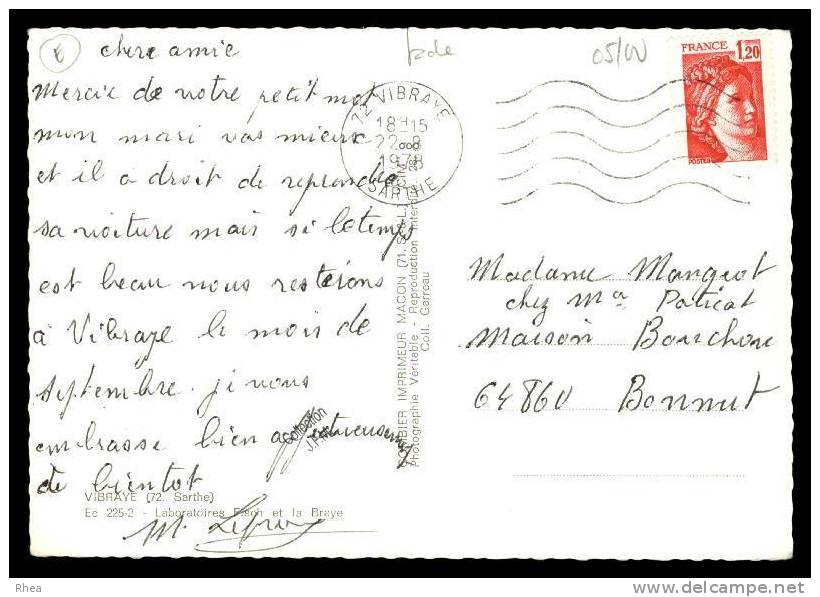 chere amie
Mercie de votre petit mot
mon mari vas mieux
et il a droit de reprendre
sa voiture mais si le temps
est beau nous resterons
à Vibraye le mois de
septembre. je vous
embrasse bien affectueusement
de bientot
VIBRAYE (72. Sarthe)
Ec 225-2 - Laboratoires Fisch et la Braye
72 VIBRAYE
18H15
22-8
1978
SARTHE
COMBIER IMPRIMEUR MACON (71. S.-&-L.)
Photographie Véritable - Reproduction Interdite
Coll. Garreau
Collection
05/00
FRANCE 1,20
POSTES
Madame Mangeot
chez Mr Paticat
Maison Bourchou
64860 Bonnut
Rhea
delcampe.net